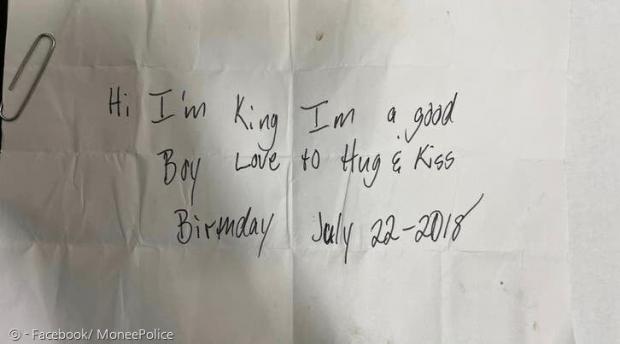 Hi I'm King I'm a good
Boy Love to Hug & Kiss
Birthday July 22-2018
© - Facebook/ MoneePolice